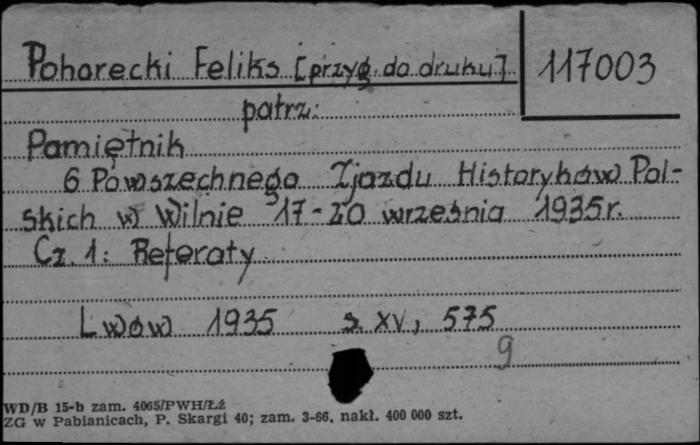 Pohorecki Feliks [przyg. do druku] 117003
patrz:
Pamiętnik
6 Powszechnego Zjazdu Historyków Pol-
skich w Wilnie 17-20 września 1935r.
Cz. 1: Referaty
Lwów 1935 s. XV, 575
9
WD/B 15-b zam. 4065/PWH/Łź
ZG w Pabianicach, P. Skargi 40; zam. 3-66, nakł. 400 000 szt.